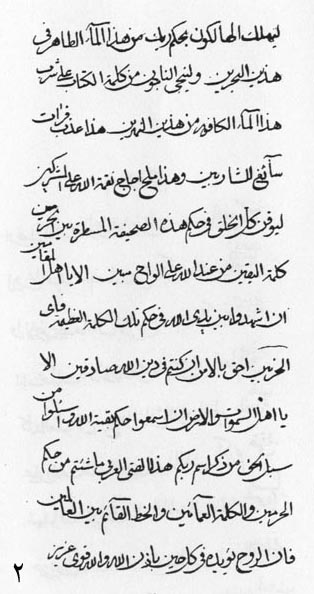 ليهلك الهالكون بحكم ربك من هذا الماء الطاهر في
هذين البحرين ولينجي الناجون من كلمة الكتاب على شرب
هذا الماء الكافور من هذين النهرين هذا عذب فرات
سآئغ للشاربين وهذا ملح اجاج نقمة الله على المشركين
ليوقن كل الخلق في حكم هذه الصحيفة المسطرة بين البحرين من
كلمة اليقين من عند الله على الواح مبين الا يا اهل المقامين
ان اشهدوا بين يدي الله في حكم تلك الكلمة العظيمة فاي
الحزبين احق بالامر ان كنتم في دين الله صادقين الا
يا اهل السموات والارض ان اسمعوا حكم بقية الله واسئلوا من
سبيل الحق من ذكر اسم ربكم هذا الفتى العربي ما شئتم من حكم
الحرمين والكلمة العمائين والخط القآئم بين العالمين
فان الروح يؤيده في كل حين باذن الله والله قوي عزيز
٢